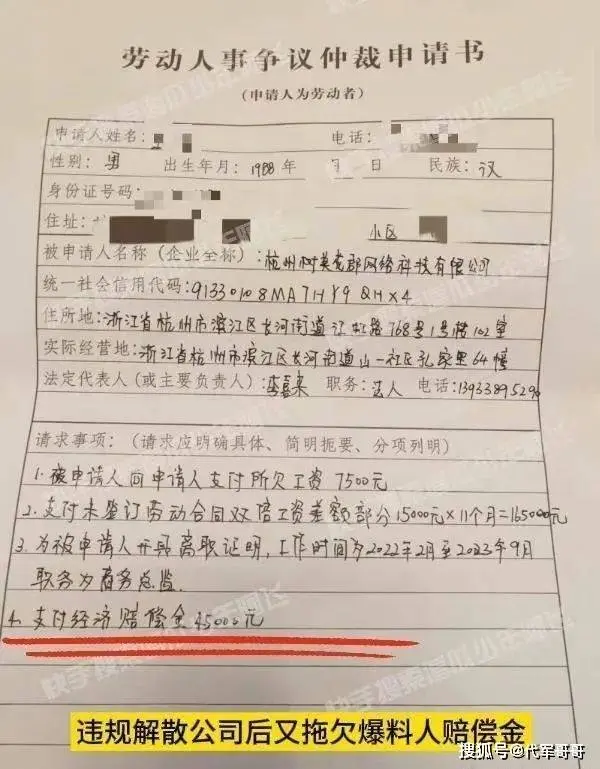 劳动人事争议仲裁申请书
(申请人为劳动者)
申请人姓名: 电话:
性别:男 出生年月:1988年 月 日 民族:汉
身份证号码:
住址: 小区
被申请人名称(企业全称):杭州树英克郡网络科技有限公司
统一社会信用代码:91330108MA7HY9QHX4
住所地:浙江省杭州市滨江区长河街道江虹路768号1号楼102室
实际经营地:浙江省杭州市滨江区长河街道山一社区孔家里64幢
法定代表人(或主要负责人): 职务:法人 电话:13933895290
请求事项:(请求应明确具体、简明扼要、分项列明)
1.被申请人向申请人支付所欠工资7500元
2.支付未签订劳动合同双倍工资差额部分15000元×11个月=165000元
3.为被申请人开具离职证明,工作时间为2022年2月至2023年9月
职务为商务总监.
4.支付经济赔偿金45000元
违规解散公司后又拖欠爆料人赔偿金
搜狐号@代军哥哥